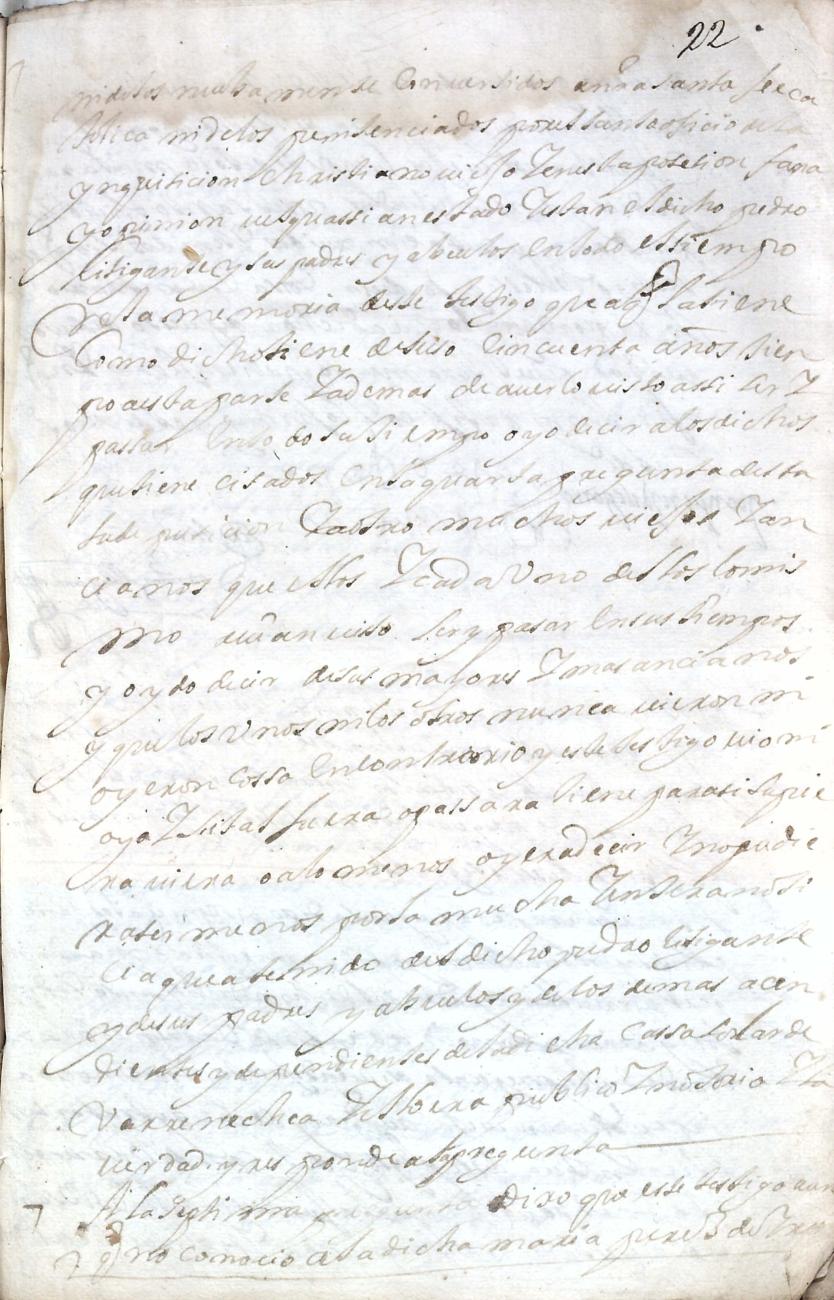 22
ni de los nuebamente Convertidos a nrã santa fee ca
tolica ni de los penitenciados por el santo oficio de la
ynquisicion Christiano viejo Y en esta posesion fama
y opinion ve que assi an estado Y estan el dicho pedro
litigante y sus padres y abuelos en todo el tiempo
de la memoria deste testigo que la tiene
Como dicho tiene de suso Cinquenta años tien
po a esta parte Y ademas de averlo visto assi ser Y
passar En todo su tiempo oyo decir a los dichos
que tiene citados En la quarta pregunta desta
su de pusicion Y a otro muchos viejos Y an
cianos que ellos Y cada Uno dellos lo mis
mo avian visto ser y pasar En sus tiempos
y oydo decir de sus mayores Y mas ancianos
y que los Unos ni los otros nunca vieron ni
oyeron Cossa En contrario y este testigo vio ni
oyo Y si tal fuera o passara tiene para si supie
ra viera o a lo menos oyera decir Y no pudie
ra ser menos por la mucha Y entera noti
cia que a tenido del dicho pedro litigante
y de sus padres y abuelos y de los demas acen
dientes y dependientes de la dicha Cassa solar de
Varrenechea Y ello era publico Y notorio Y la
verdad y responde a la pregunta
A la septima pregunta dixo que este testigo aun
q̃ no conocio a la dicha maria perez de